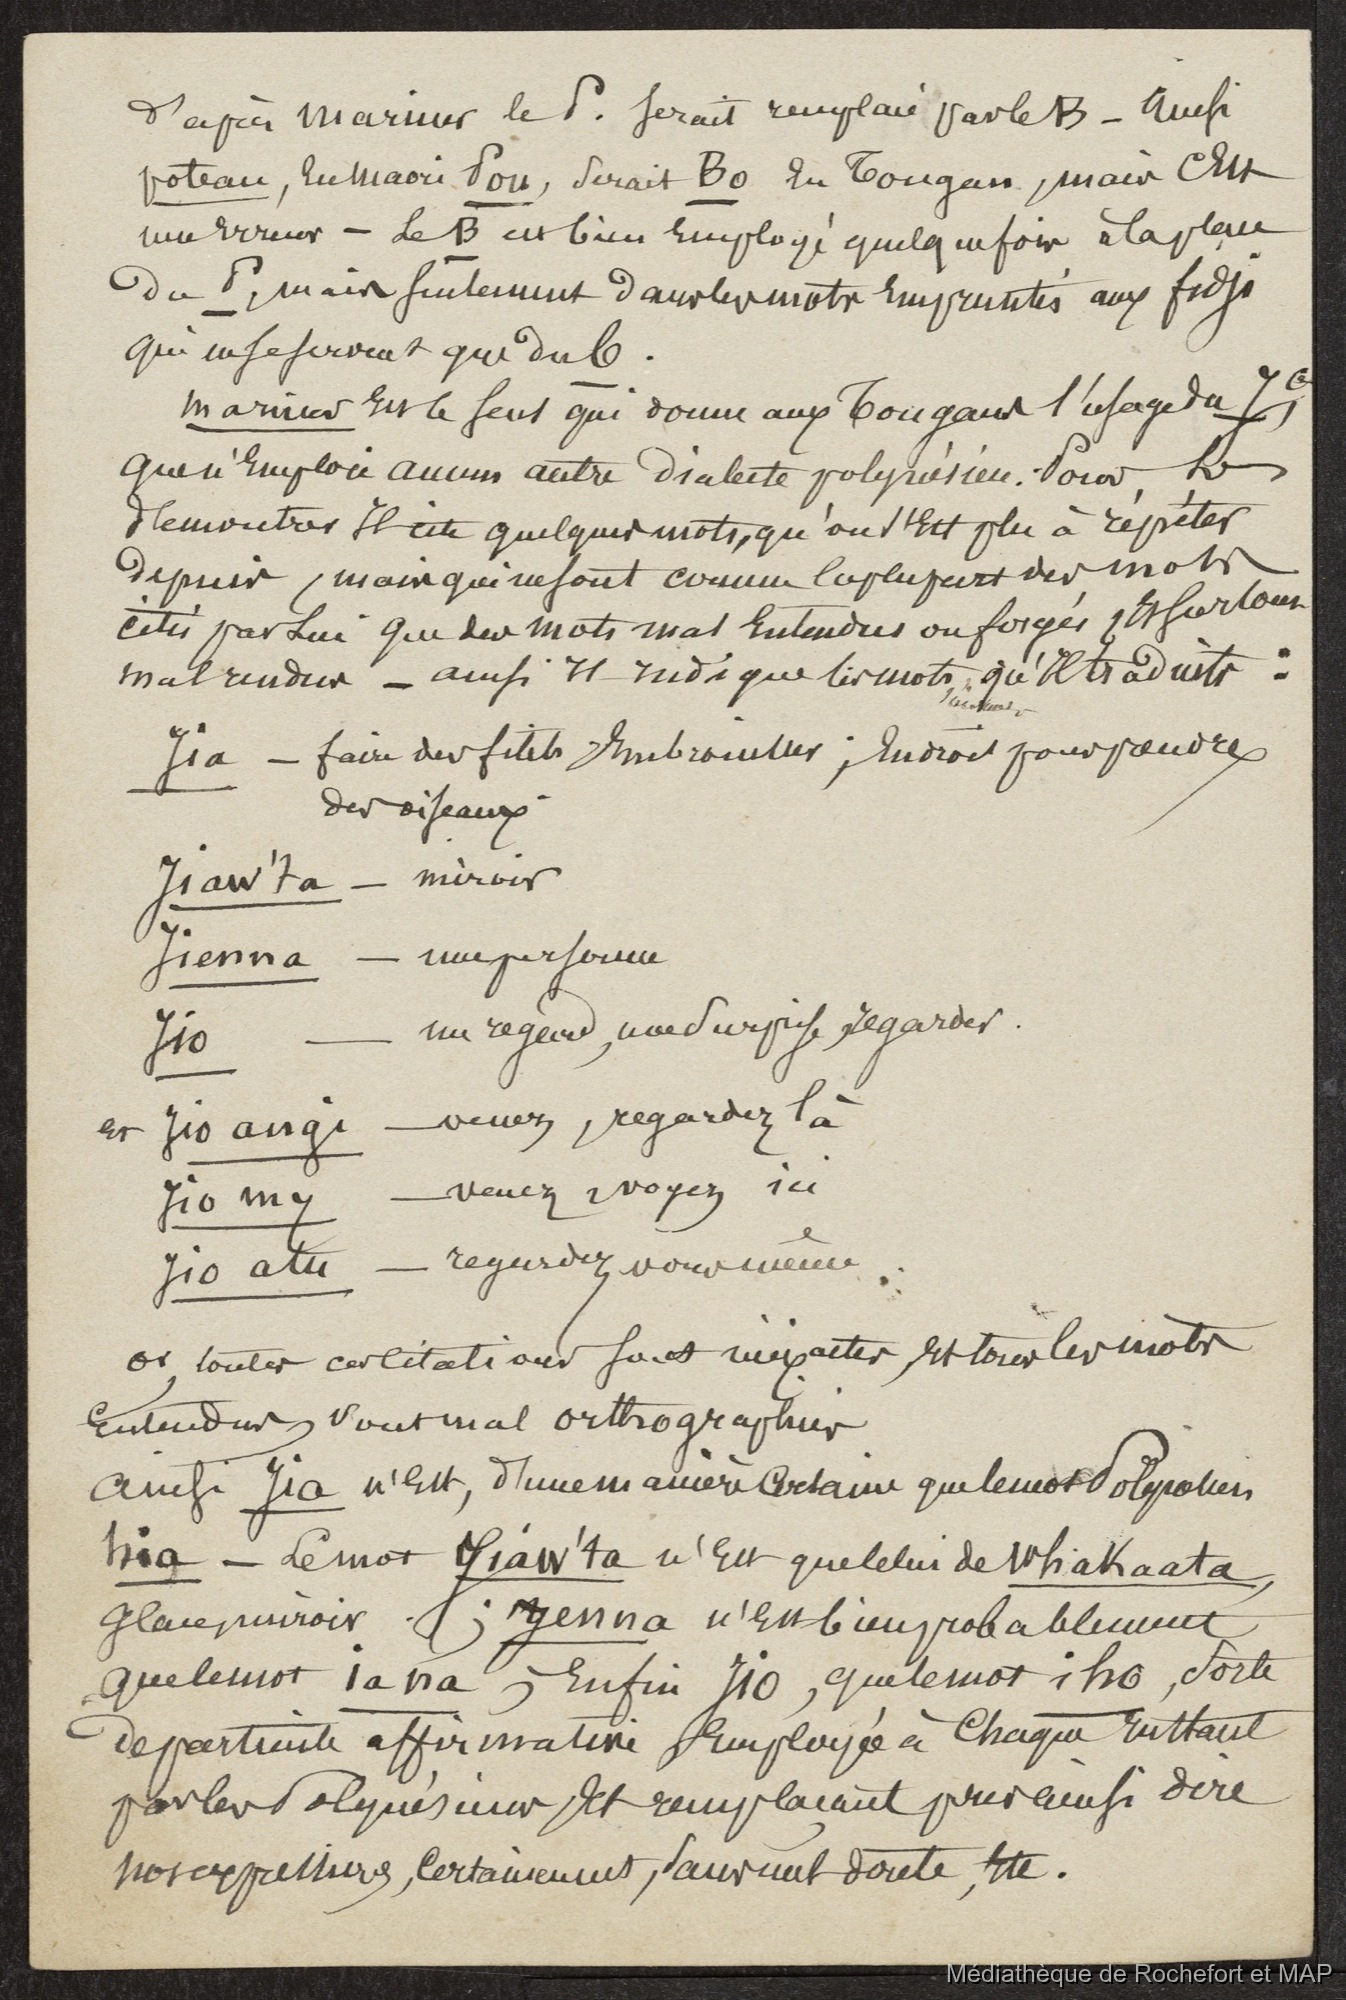 d'après Mariner le P. serait remplacé par le B – Ainsi
poteau, en Maori Pou, serait Bo en Tongan, mais c'est
une erreur – Le B est bien employé quelquefois à la place
du P, mais seulement dans les mots empruntés aux fidji
qui ne se servent que du b.
Mariner est le seul qui donne aux Tongans l'usage du J,
que n'emploie aucun autre dialecte polynésien. Pour le
démontrer il cite quelques mots, qu'on s'est plu à répéter
depuis, mais qui ne sont comme la plupart des mots
cités par lui que des mots mal entendus ou forgés, et surtout
mal rendus – ainsi il indique les mots qu'il traduits :
Jia – faire des filets embrouillés ; endroit pour prendre
des oiseaux
Jiaw'ta – miroir
Jienna – une personne
Jio — un regard, une surprise, regarder.
et Jio angi — venez, regardez là
Jio my — venez, voyez ici
Jio atu — regardez vous même.
or, toutes ces citations sont inexactes, et tous les mots
entendus, sont mal orthographiés
ainsi Jia n'est, d'une manière certaine que le mot Polynésien
hia – Le mot Jiaw'ta n'est que celui de Whakaata,
glace, miroir ; Jenna n'est bien probablement
que le mot iana ; enfin Jio, que le mot iho, sorte
de particule affirmative employée à chaque instant
par les Polynésiens, et remplaçant pour ainsi dire
nos expressions, certainement, sans nul doute, etc.
Médiathèque de Rochefort et MAP